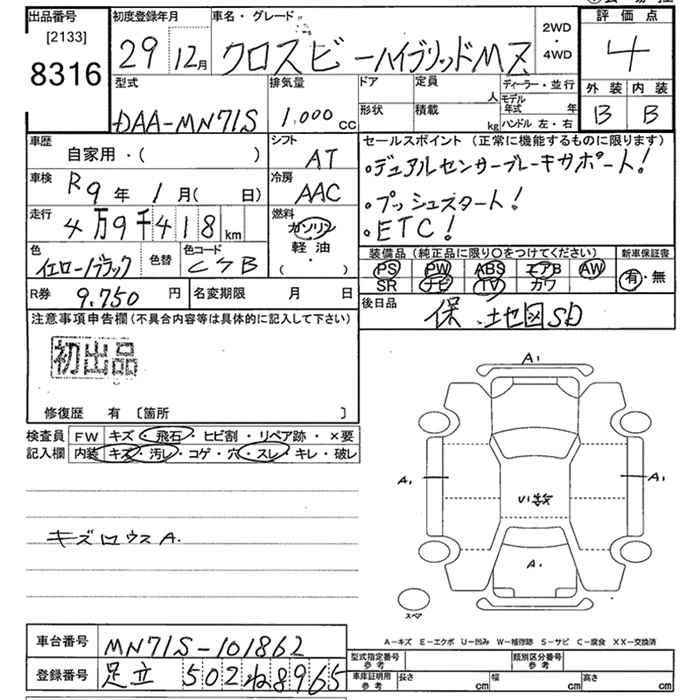 出品番号 初度登録年月 車名・グレード 評価点
[2133] 29 12月 クロスビーハイブリッドMZ 2WD・4WD 4
8316 型式 排気量 ドア 定員 人 ディーラー・並行 外装 内装
DAA-MN71S 1,000 cc 形状 積載 kg モデル年式 年 ハンドル 左・右 B B
車歴 自家用・( ) シフト AT セールスポイント (正常に機能するものに限ります)
車検 R9年 1月( 日) 冷房 AAC ・デュアルセンサーブレーキサポート!
走行 4万9千418km 燃料 ガソリン ・プッシュスタート!
軽油 ・ETC!
色 イエロー/ブラック 色替 色コード C7B ( ) 装備品 (純正品に限り○をつけてください) 新車保証書
PS PW ABS エアB AW 有・無
SR ナビ TV カワ
R券 9,750円 名変期限 月 日 後日品 保、地図SD
注意事項申告欄 (不具合内容等は具体的に記入して下さい)
初出品
修復歴 有 〔箇所 〕
検査員 FW キズ・飛石・ヒビ割・リペア跡・×要
記入欄 内装 キズ・汚レ・コゲ・穴・スレ・キレ・破レ
A1
A1 A1
A1
スペア
キズロウスA.
A-キズ E-エクボ U-凹み W-補修跡 S-サビ C-腐食 XX-交換済
車台番号 MN71S-101862 型式指定番号 参考 類別区分番号 参考
登録番号 足立 502 ね8965 車庫証明用 参考 長さ cm 幅 cm 高さ cm